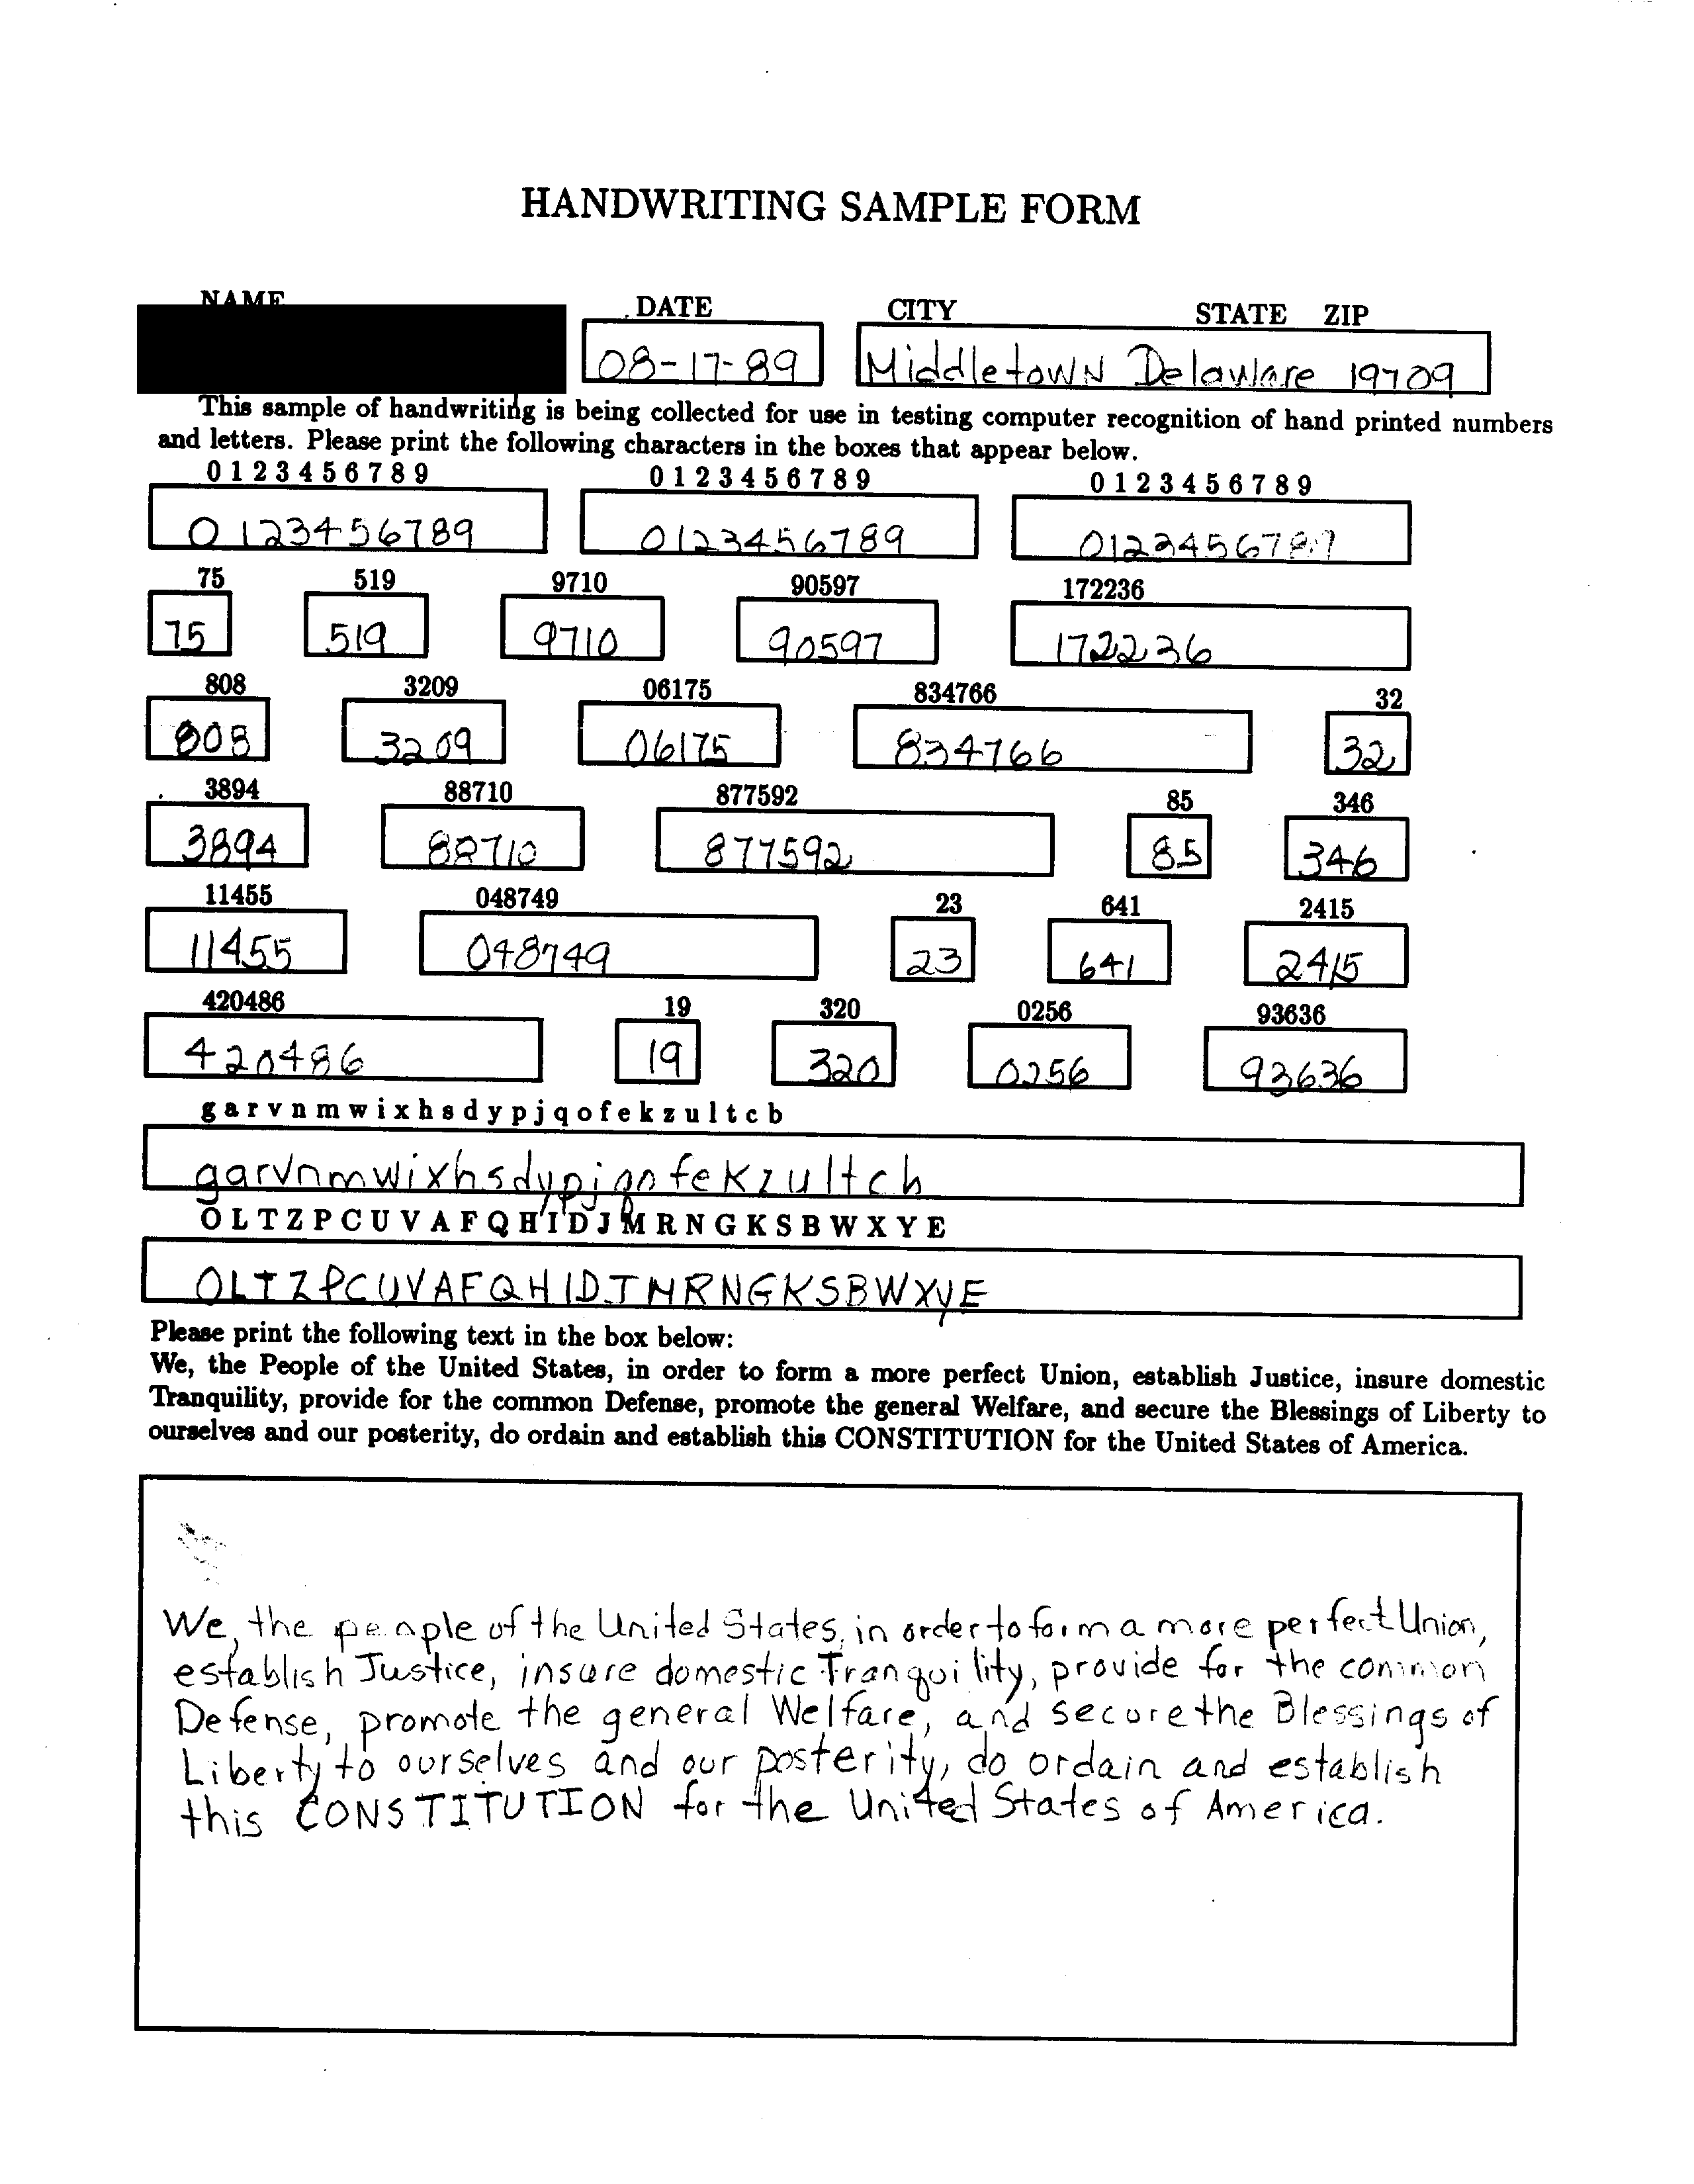 HANDWRITING SAMPLE FORM
NAME DATE CITY STATE ZIP
08-17-89 Middletown Delaware 19709
This sample of handwriting is being collected for use in testing computer recognition of hand printed numbers
and letters. Please print the following characters in the boxes that appear below.
0 1 2 3 4 5 6 7 8 9 0 1 2 3 4 5 6 7 8 9 0 1 2 3 4 5 6 7 8 9
0123456789 0123456789 0123456789
75 519 9710 90597 172236
75 519 9710 90597 172236
808 3209 06175 834766 32
808 3209 06175 834766 32
3894 88710 877592 85 346
3894 88710 877592 85 346
11455 048749 23 641 2415
11455 048749 23 641 2415
420486 19 320 0256 93636
420486 19 320 0256 93636
g a r v n m w i x h s d y p j q o f e k z u l t c b
garvnmwixhsdypjqofekzultcb
O L T Z P C U V A F Q H I D J M R N G K S B W X Y E
OLTZPCUVAFQHIDJMRNGKSBWXYE
Please print the following text in the box below:
We, the People of the United States, in order to form a more perfect Union, establish Justice, insure domestic
Tranquility, provide for the common Defense, promote the general Welfare, and secure the Blessings of Liberty to
ourselves and our posterity, do ordain and establish this CONSTITUTION for the United States of America.
We, the people of the United States, in order to form a more perfect Union,
establish Justice, insure domestic Tranquility, provide for the common
Defense, promote the general Welfare, and secure the Blessings of
Liberty to ourselves and our posterity, do ordain and establish
this CONSTITUTION for the United States of America.